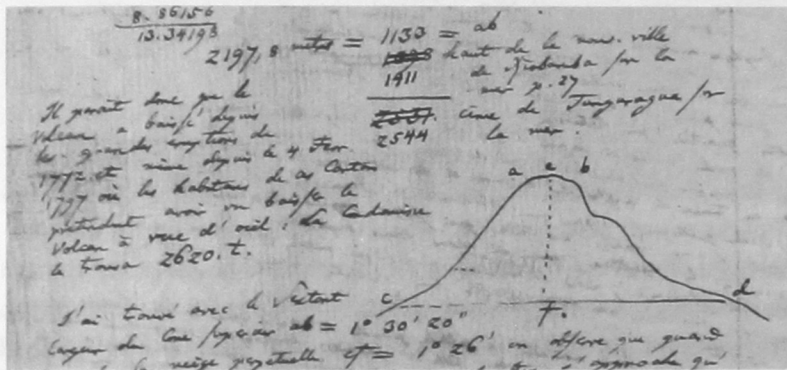 8.86156
13.34193
2197,8 metres = 1133 = ab
haut de la nouv. ville
1411 de Riobamba sur la
mer p. 27
2544 cime de Tunguragua sur
la mer.
Il paroit donc que le
Volcan a baissé depuis
les grandes eruptions de
1772 et même depuis le 4 Fevr
1797 où les habitans de ces Cantons
pretendent avoir vu baisser le
Volcan à vue d'oeil. La Condamine
le trouva 2620. t.
a e b
c f. d
J'ai trouvé avec le Sextant
largeur du Cone superieur ab = 1° 30' 20"
la neige perpetuelle cf = 1° 26' on observe que quand
approche qu'